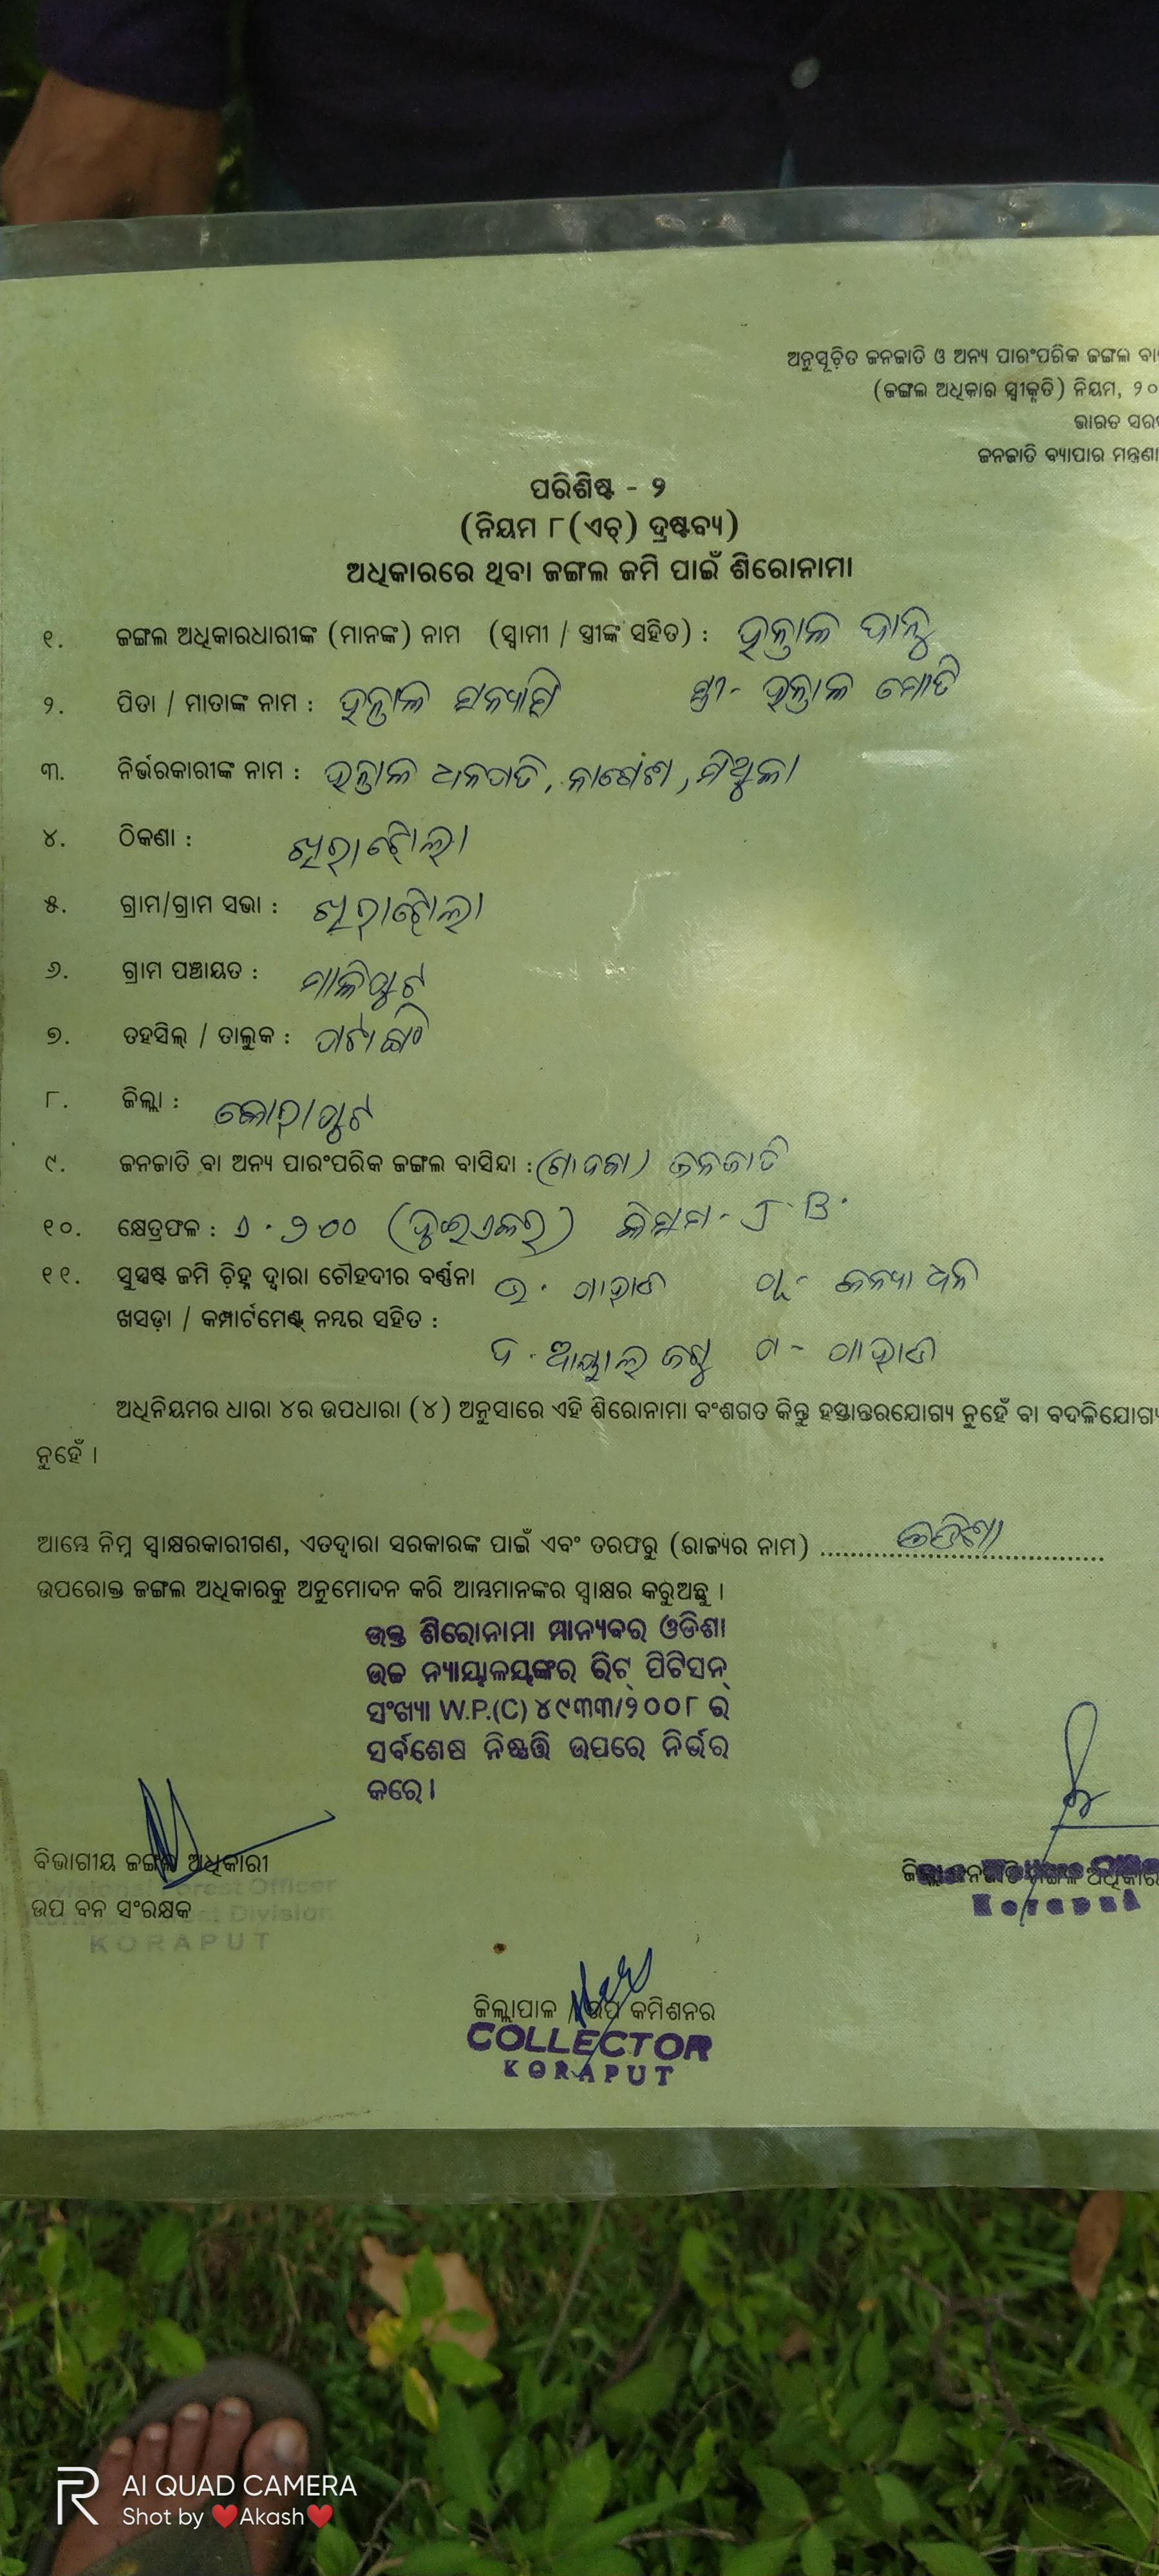 ଅନୁସୂଚିତ ଜନଜାତି ଓ ଅନ୍ୟ ପାରଂପରିକ ଜଙ୍ଗଲ
(ଜଙ୍ଗଲ ଅଧିକାର ସ୍ୱୀକୃତି) ନିୟମ, ୨୦
ଭାରତ ସର
ଜନଜାତି ବ୍ୟାପାର
ପରିଶିଷ୍ଟ - ୨
(ନିୟମ ୮(ଏଚ୍) ଦ୍ରଷ୍ଟବ୍ୟ)
ଅଧିକାରରେ ଥିବା ଜଙ୍ଗଲ ଜମି ପାଇଁ ଶିରୋନାମା
୧. ଜଙ୍ଗଲ ଅଧିକାରଧାରୀଙ୍କ (ମାନଙ୍କ) ନାମ (ସ୍ୱାମୀ / ସ୍ତ୍ରୀଙ୍କ ସହିତ) : ହନ୍ତାଳ
୨. ପିତା / ମାତାଙ୍କ ନାମ : ହନ୍ତାଳ ସନ୍ୟାସି ସ୍ତ୍ରୀ- ହନ୍ତାଳ ମୋତି
୩. ନିର୍ଭରକାରୀଙ୍କ ନାମ : ହନ୍ତାଳ ଧନପତି,
୪. ଠିକଣା :
୫. ଗ୍ରାମ/ଗ୍ରାମ ସଭା :
୬. ଗ୍ରାମ ପଞ୍ଚାୟତ : ମାଳିପୁଟ
୭. ତହସିଲ୍ / ତାଲୁକ : ପଟାଙ୍ଗି
୮. ଜିଲ୍ଲା : କୋରାପୁଟ
୯. ଜନଜାତି ବା ଅନ୍ୟ ପାରଂପରିକ ଜଙ୍ଗଲ ବାସିନ୍ଦା : (ଗାଦବା) ଜନଜାତି
୧୦. କ୍ଷେତ୍ରଫଳ : ୨.୦୦ (ଦୁଇଏକର) କିସମ-
୧୧. ସୁସ୍ପଷ୍ଟ ଜମି ଚିହ୍ନ ଦ୍ୱାରା ଚୌହଦୀର ବର୍ଣ୍ଣନା ଉ. ପାହାଡ ପୂ-
ଖସଡ଼ା / କମ୍ପାର୍ଟମେଣ୍ଟ ନମ୍ବର ସହିତ :
ଦ. ପ- ପାହାଡ
ଅଧିନିୟମର ଧାରା ୪ର ଉପଧାରା (୪) ଅନୁସାରେ ଏହି ଶିରୋନାମା ବଂଶଗତ କିନ୍ତୁ ହସ୍ତାନ୍ତରଯୋଗ୍ୟ ନୁହେଁ ବା ବଦଳିଯୋଗ୍ୟ
ନୁହେଁ ।
ଆମ୍ଭେ ନିମ୍ନ ସ୍ୱାକ୍ଷରକାରୀଗଣ, ଏତଦ୍ୱାରା ସରକାରଙ୍କ ପାଇଁ ଏବଂ ତରଫରୁ (ରାଜ୍ୟର ନାମ) ଓଡିଶା
ଉପରୋକ୍ତ ଜଙ୍ଗଲ ଅଧିକାରକୁ ଅନୁମୋଦନ କରି ଆମ୍ଭମାନଙ୍କର ସ୍ୱାକ୍ଷର କରୁଅଛୁ ।
ଉକ୍ତ ଶିରୋନାମା ମାନ୍ୟବର ଓଡିଶା
ଉଚ୍ଚ ନ୍ୟାୟାଳୟଙ୍କର ରିଟ୍ ପିଟିସନ୍
ସଂଖ୍ୟା W.P.(C) ୪୯୩୩/୨୦୦୮ ର
ସର୍ବଶେଷ ନିଷ୍ପତ୍ତି ଉପରେ ନିର୍ଭର
କରେ।
ବିଭାଗୀୟ ଜଙ୍ଗଲ ଅଧିକାରୀ
Divisional Forest Officer
ଉପ ବନ ସଂରକ୍ଷକ
Division
KORAPUT
ଜିଲ୍ଲା ଜନଜାତି ମଙ୍ଗଳ ଅଧିକାର
Koraput
ଜିଲ୍ଲାପାଳ / ଉପ କମିଶନର
COLLECTOR
KORAPUT
AI QUAD CAMERA
Shot by ❤️Akash❤️